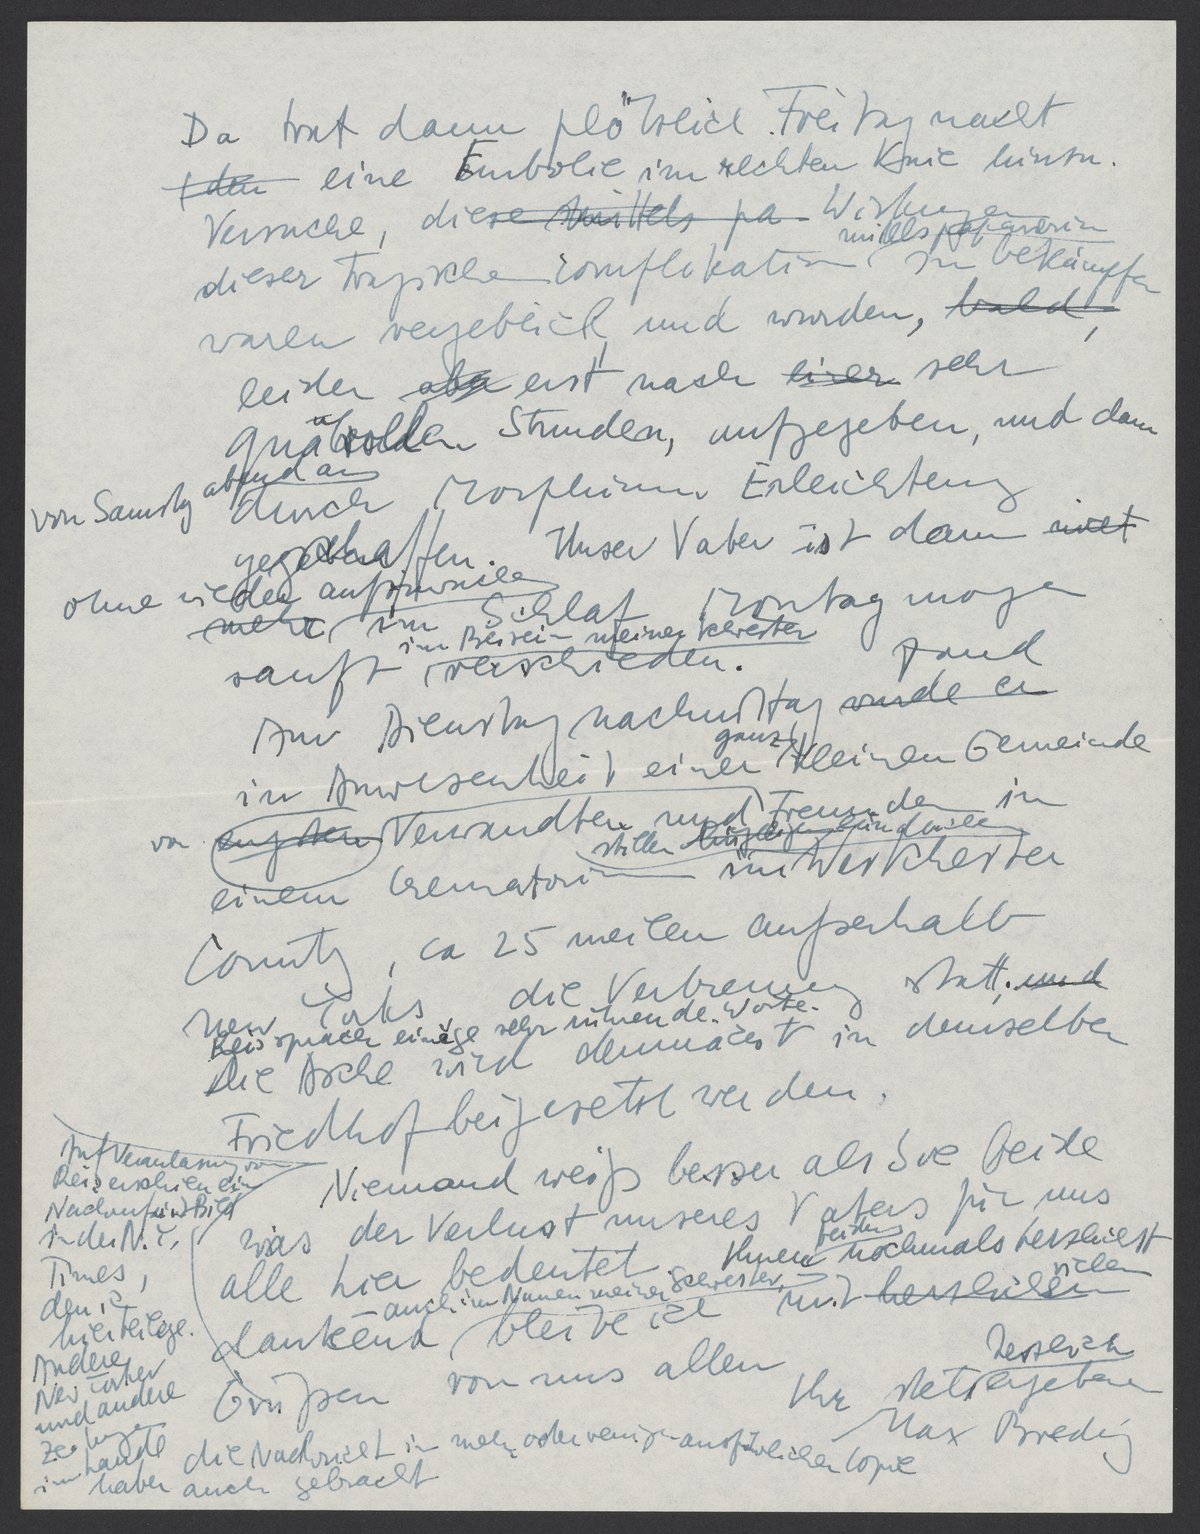 Da trat dann plötzlich Freitag nacht
eine Embolie im rechten Knie hinzu.
Versuche, diese Mittels pa Wirkungen
mittels papaverin
dieser tragischen Complikation zu bekämpfen
waren vergeblich, und wurden, bald,
leider aber erst nach einer sehr
quälvollen Stunden, aufgegeben, und dann
von Samstag abend an
durch Morphium Erleichterung
geschaffen. Unser Vater ist dann nicht
ohne wieder aufzuwachen
mehr, im Schlaf Montag morgen
im Beisein meiner Schwester
sanft verschieden.
Am Dienstag nachmittag wurde er fand
ganz
in Anwesenheit einer kleinen Gemeinde
von engsten Verwandten und Freunden in
stillen
einem Crematorium im Westchester
County, ca 25 meilen außerhalb
New Yorks die Verbrennung statt. und
Reis sprach einige sehr rührende Worte.
Die Asche wird demnächst in demselben
Friedhof beigesetzt werden.
Niemand weiß besser als Sie beide
was der Verlust unseres Vaters für uns
alle hier bedeutet. Ihnen beiden nochmals herzlichst
auch im Namen meiner Schwester,
dankend bleibe ich mit herzlichen vielen
Grüßen von uns allen
Ihr stets herzlich ergebener
Max Bredig
Auf Veranlassung von
Reis erschien ein
Nachruf mit Bild
in der N.Y.
Times,
den ich
hier beilege.
Andere
New Yorker
und andere
Zeitungen
im Lande
haben auch gebracht
die Nachricht in mehr oder weniger ausführlicher Copie